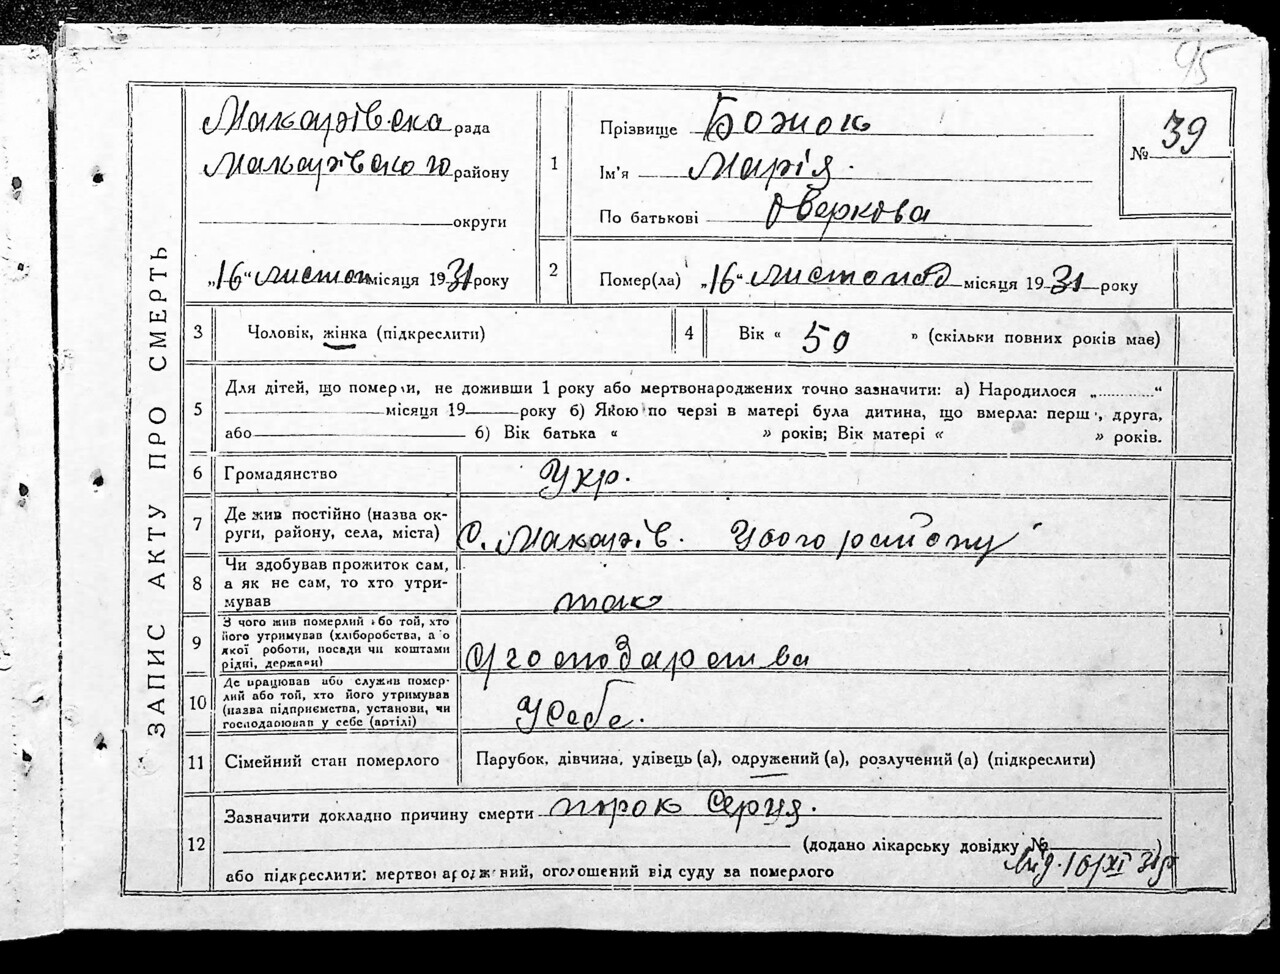 95
ЗАПИС АКТУ ПРО СМЕРТЬ
Макарівска рада
Макарівского району
округи
„16“ листоп місяця 1931 року
1
Прізвище Божок
Ім'я Марія.
По батькові Оверкова
№ 39
2
Помер(ла) „16“ листопад місяця 1931 року
3
Чоловік, жінка (підкреслити)
4
Вік « 50 » (скільки повних років має)
5
Для дітей, що померли, не доживши 1 року або мертвонароджених точно зазначити: а) Народилося „............“
місяця 19 року б) Якою по черзі в матері була дитина, що вмерла: перш , друга,
або б) Вік батька « » років; Вік матері « » років.
6
Громадянство
Укр.
7
Де жив постійно (назва ок-
руги, району, села, міста)
С. Макарів. Увого району
8
Чи здобував прожиток сам,
а як не сам, то хто утри-
мував
так
9
З чого жив померлий або той, хто
його утримував (хліборобства, а о
якої роботи, посади чи коштами
рідні, держави)
З господарства
10
Де працював або служив помер-
лий або той, хто його утримував
(назва підприємства, установи, чи
господарював у себе (артілі)
У себе.
11
Сімейний стан померлого
Парубок, дівчина, удівець (а), одружений (а), розлучений (а) (підкреслити)
12
Зазначити докладно причину смерти порок серця.
(додано лікарську довідку №
від. 16/XI 31р
або підкреслити: мертвонароджений, оголошений від суду за померлого